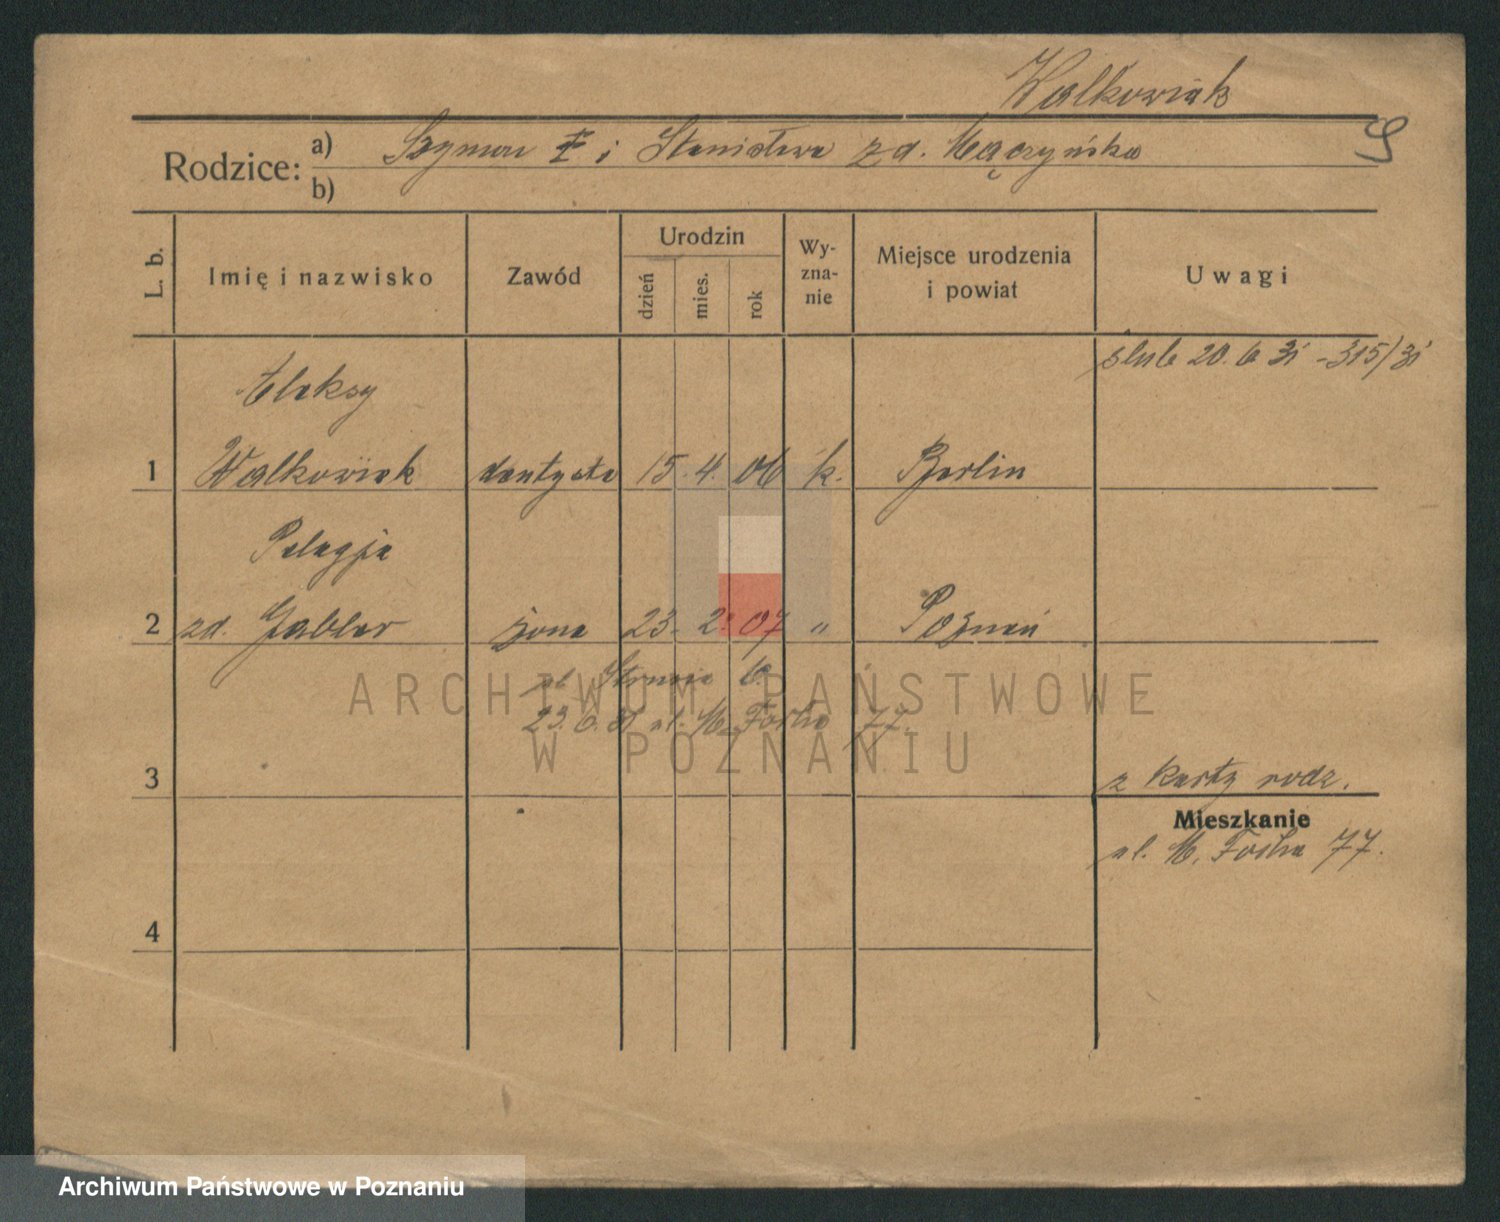 Walkowiak
Rodzice: a) Szymon i Stanisława zd. Mączyńska
b)
L. b.
Imię i nazwisko
Zawód
Urodzin
dzień
mies.
rok
Wy-
zna-
nie
Miejsce urodzenia
i powiat
Uwagi
ślub 20. 6 31 - 315/31
Aleksy
1 Walkowiak dentysta 15. 4. 06 k. Berlin
Pelagja
2 zd. Gabler żona 23. 2. 07 " Poznań
ul. Strusia 6.
23. 6. 31 ul. M. Focha 77.
ARCHIWUM PAŃSTWOWE
W POZNANIU
3
z karty rodz.
Mieszkanie
ul. M. Focha 77.
4
Archiwum Państwowe w Poznaniu